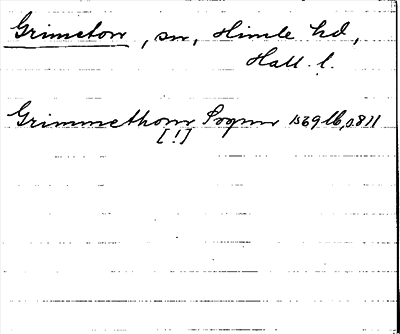 Grimeton, sn, Himle hd,
Hall. l.
Grimmethom Sognn 1569 lb, 0811
[!]